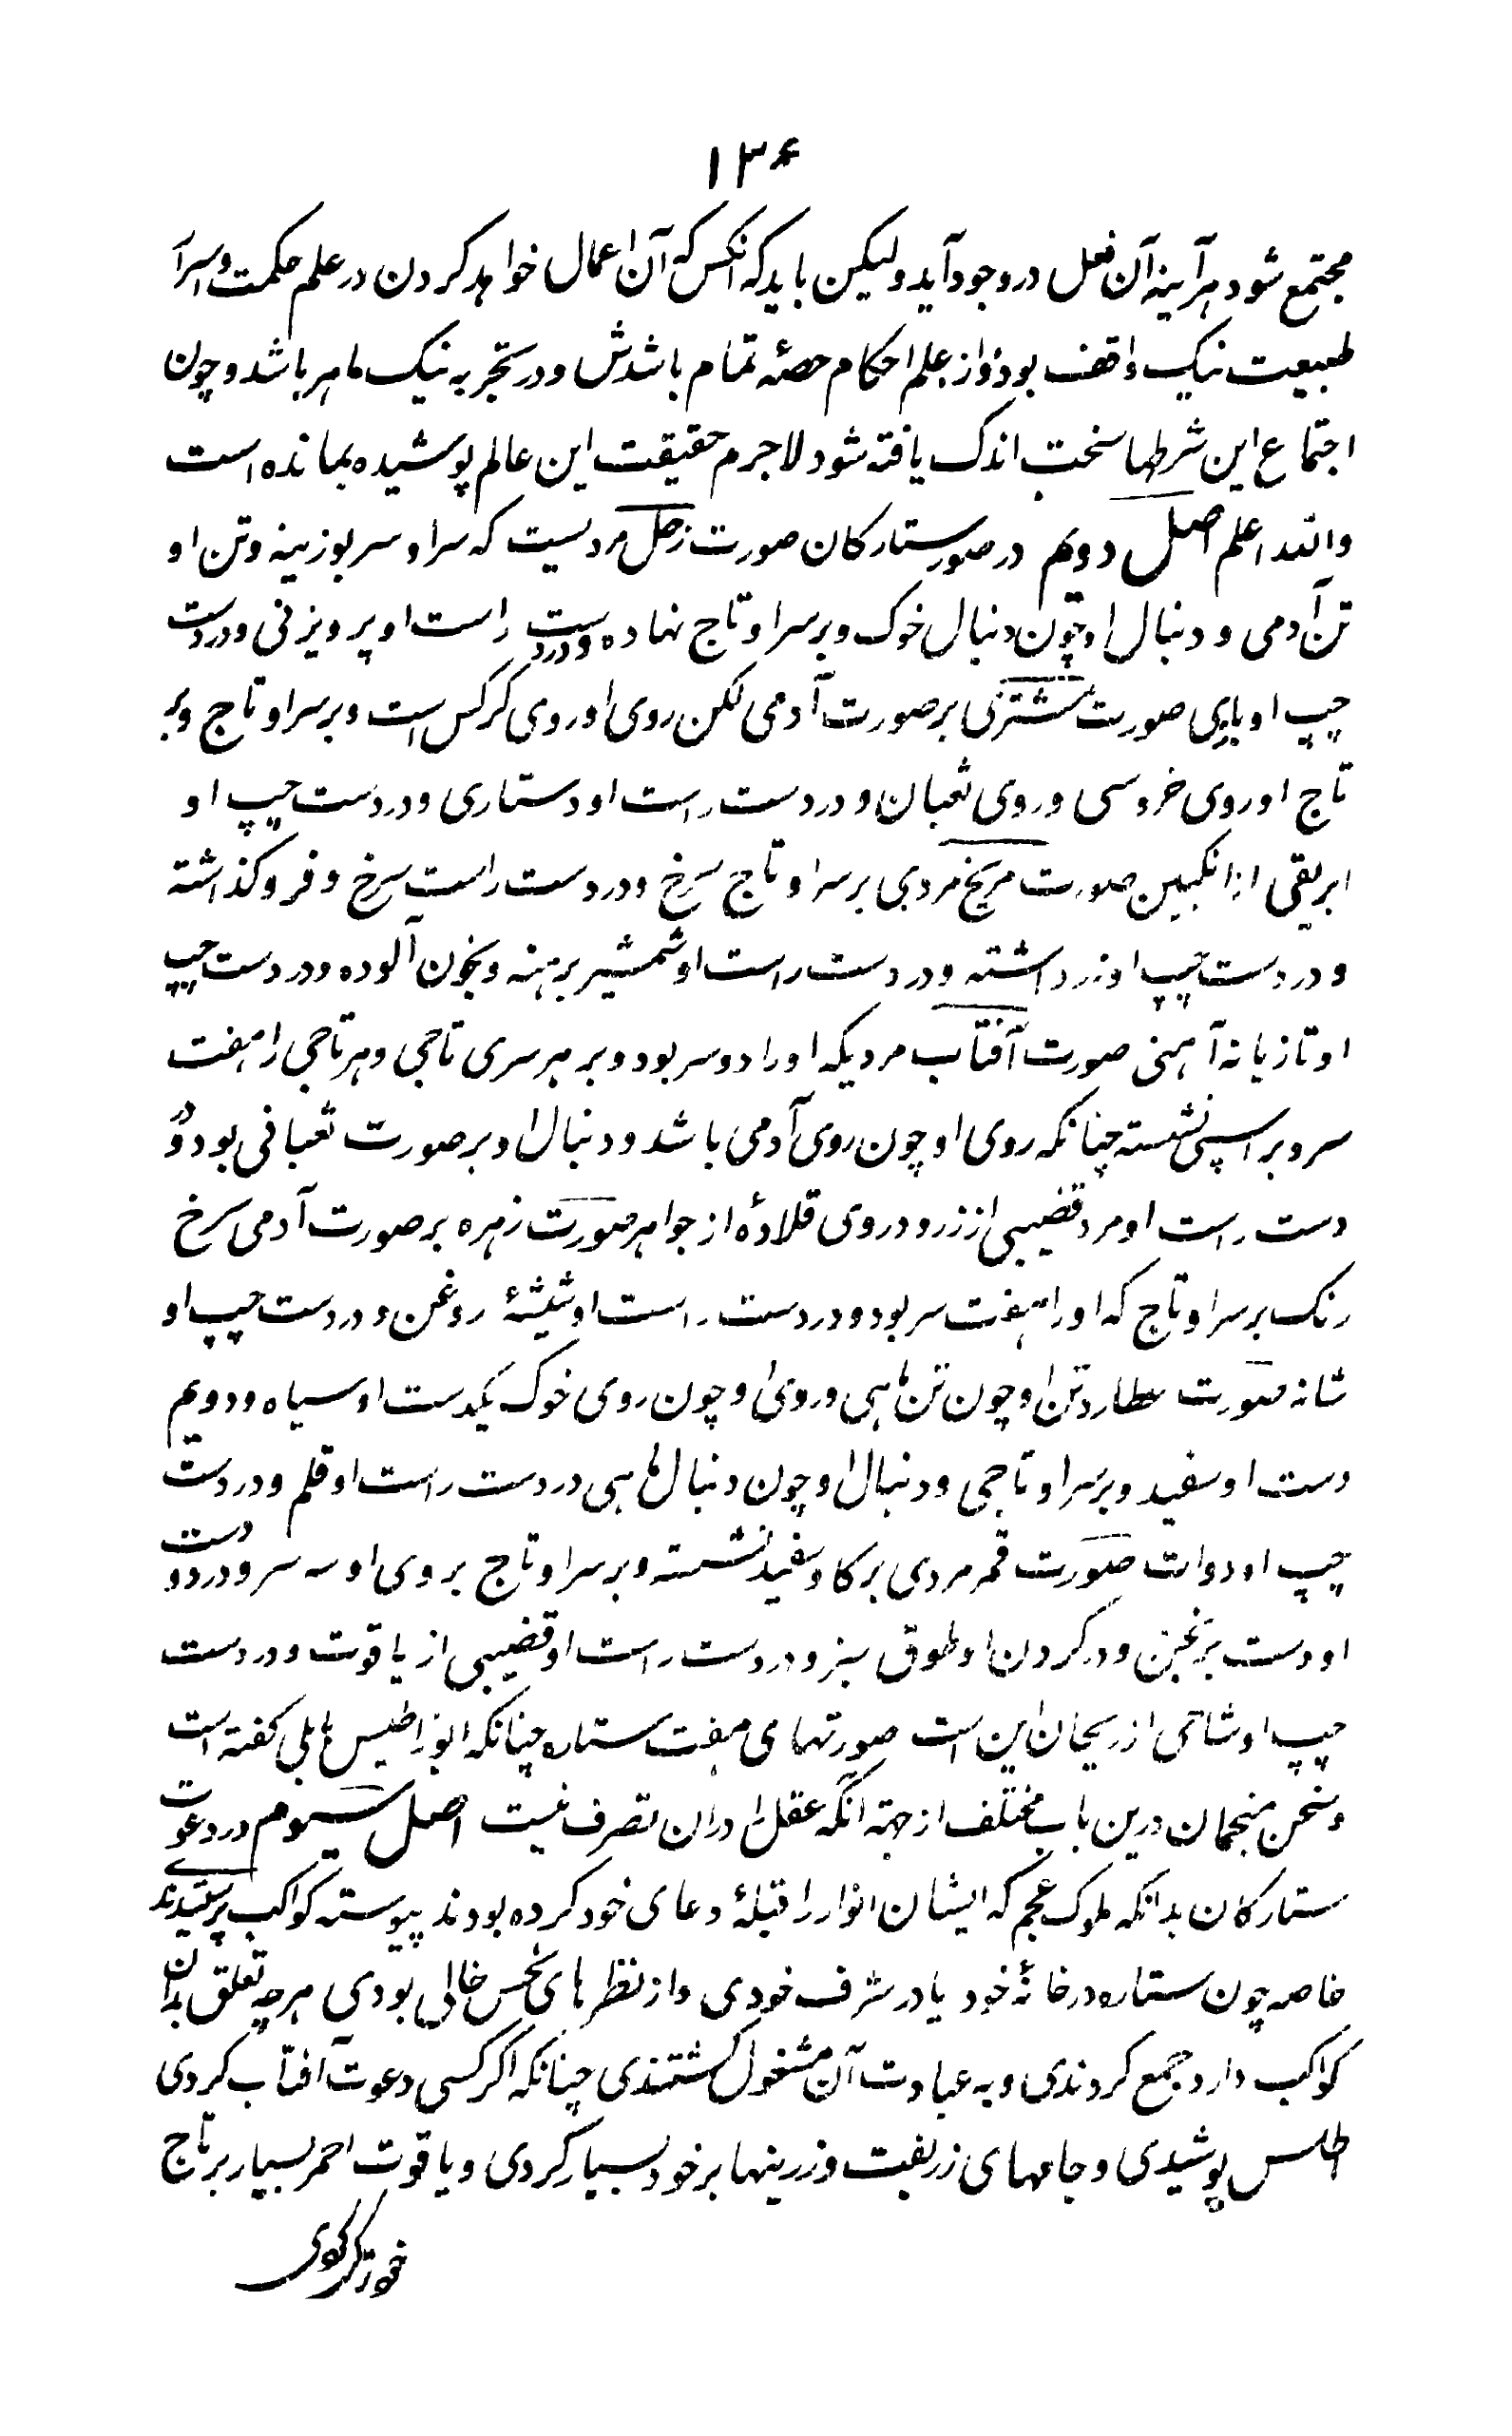 ۱۳۶
مجتمع شود هرآینه آن فعل در وجود آید ولیکن باید که آنکس که آن اعمال خواهد کردن در علم حکمت و اسرار
طبیعت نیک واقف بود و از علم احکام حصهٔ تمام باشدش و در تجربه نیک ماهر باشد و چون
اجتماع این شرطها سخت اندک یافته شود لاجرم حقیقت این عالم پوشیده بمانده است
والله اعلم اصل دویم در صور ستارکان صورت زحل مردیست که سر او سر بوزینه و تن او
تن آدمی و دنبال او چون دنبال خوک و بر سر او تاج نهاده و در دست راست او پرویزنی و در دست
چپ او یاری صورت مشتری بر صورت آدمی لکن روی او روی کرکس است و بر سر او تاج و بر
تاج او روی خروسی و روی ثعبان و در دست راست او دستاری و در دست چپ او
ابریقی از انکبین صورت مریخ مردی بر سر او تاج سرخ و در دست راست سرخ و فرو کذاشته
و در دست چپ او زرد داشته و در دست راست او شمشیر برهنه و بخون آلوده و در دست چپ
او تازیانه آهنی صورت آفتاب مردیکه او را دو سر بود و بر هر سری تاجی و هر تاجی را هفت
سر و بر اسپی نشسته چنانکه روی او چون روی آدمی باشد و دنبال او بر صورت ثعبانی بود و در
دست راست او مرد قضیبی از زر و در وی قلادهٔ از جواهر صورت زهره بر صورت آدمی سرخ
رنک بر سر او تاج که او را هفت سر بود و در دست راست او شیشهٔ روغن و در دست چپ او
شانه صورت عطارد تن او چون تن ماهی و روی او چون روی خوک یکدست او سیاه و دویم
دست او سفید و بر سر او تاجی و دنبال او چون دنبال ماهی در دست راست او قلم و در دست
چپ او دوات صورت قمر مردی بر کاو سفید نشسته و بر سر او تاج بر وی او سه سر و در دو دست
او دست برنجن و در کردن او طوق سبز و در دست راست او قضیبی از یاقوت و در دست
چپ او شاخی از ریحان این است صورتهای هفت ستاره چنانکه ابوزاطیس بابلی کفته است
و سخن منجمان درین باب مختلف از جهة آنکه عقل را دران تصرف نیست اصل سیوم در دعوت
ستارکان بدانکه ملوک عجم که ایشان انوار را قبلهٔ دعای خود کرده بودند پیوسته کواکب پرستیدندے
خاصه چون ستاره در خانهٔ خود یا در شرف خودی و از نظرهای نحس خالی بودی هرچه تعلق بدان
کواکب دارد جمع کردندی و به عبادت آن مشغول کشتندی چنانکه اکر کسی دعوت آفتاب کردی
اطلس پوشیدی و جامهای زربفت و زرینها بر خود بسیار کردی و یاقوت احمر بسیار بر تاج